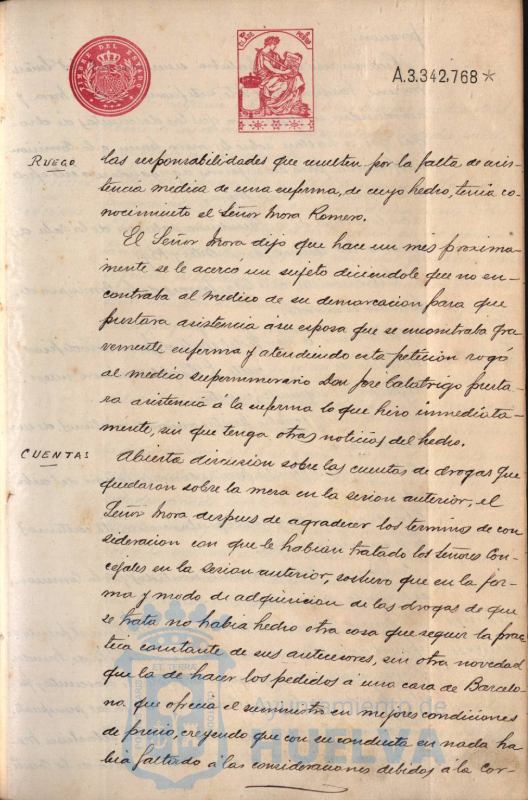 TIMBRE DEL ESTADO
A.3.342.768*
RUEGO
las responsabilidades que resulten por la falta de asis-
tencia médica de una enferma, de cuyo hecho, tenia co-
nocimiento el Señor Mora Romero.
El Señor Mora dijo que hace un mes proxima-
mente se le acercó un sujeto diciendole que no en-
contraba al medico de su demarcacion para que
prestara asistencia á su esposa que se encontraba gra-
vemente enferma y atendiendo esta peticion rogó
al medico supernumerario Don Jose Calatrigo presta-
ra asistencia á la enferma lo que hizo inmediata-
mente, sin que tenga otras noticias del hecho.
CUENTAS
Abierta discusion sobre las cuentas de drogas que
quedaron sobre la mesa en la sesion anterior, el
Señor Mora despues de agradecer los terminos de con-
sideracion con que le habian tratado los señores Con-
cejales en la sesion anterior, sostuvo que en la for-
ma y modo de adquisicion de las drogas de que
se trata no habia hecho otra cosa que seguir la prac-
tica constante de sus antecesores, sin otra novedad
que la de hacer los pedidos á una casa de Barcelo-
na que ofrecia el suministro en mejores condiciones
de precio, creyendo que con su conducta en nada ha-
bia faltado á las consideraciones debidas á la Cor-
Ayuntamiento de
HUELVA